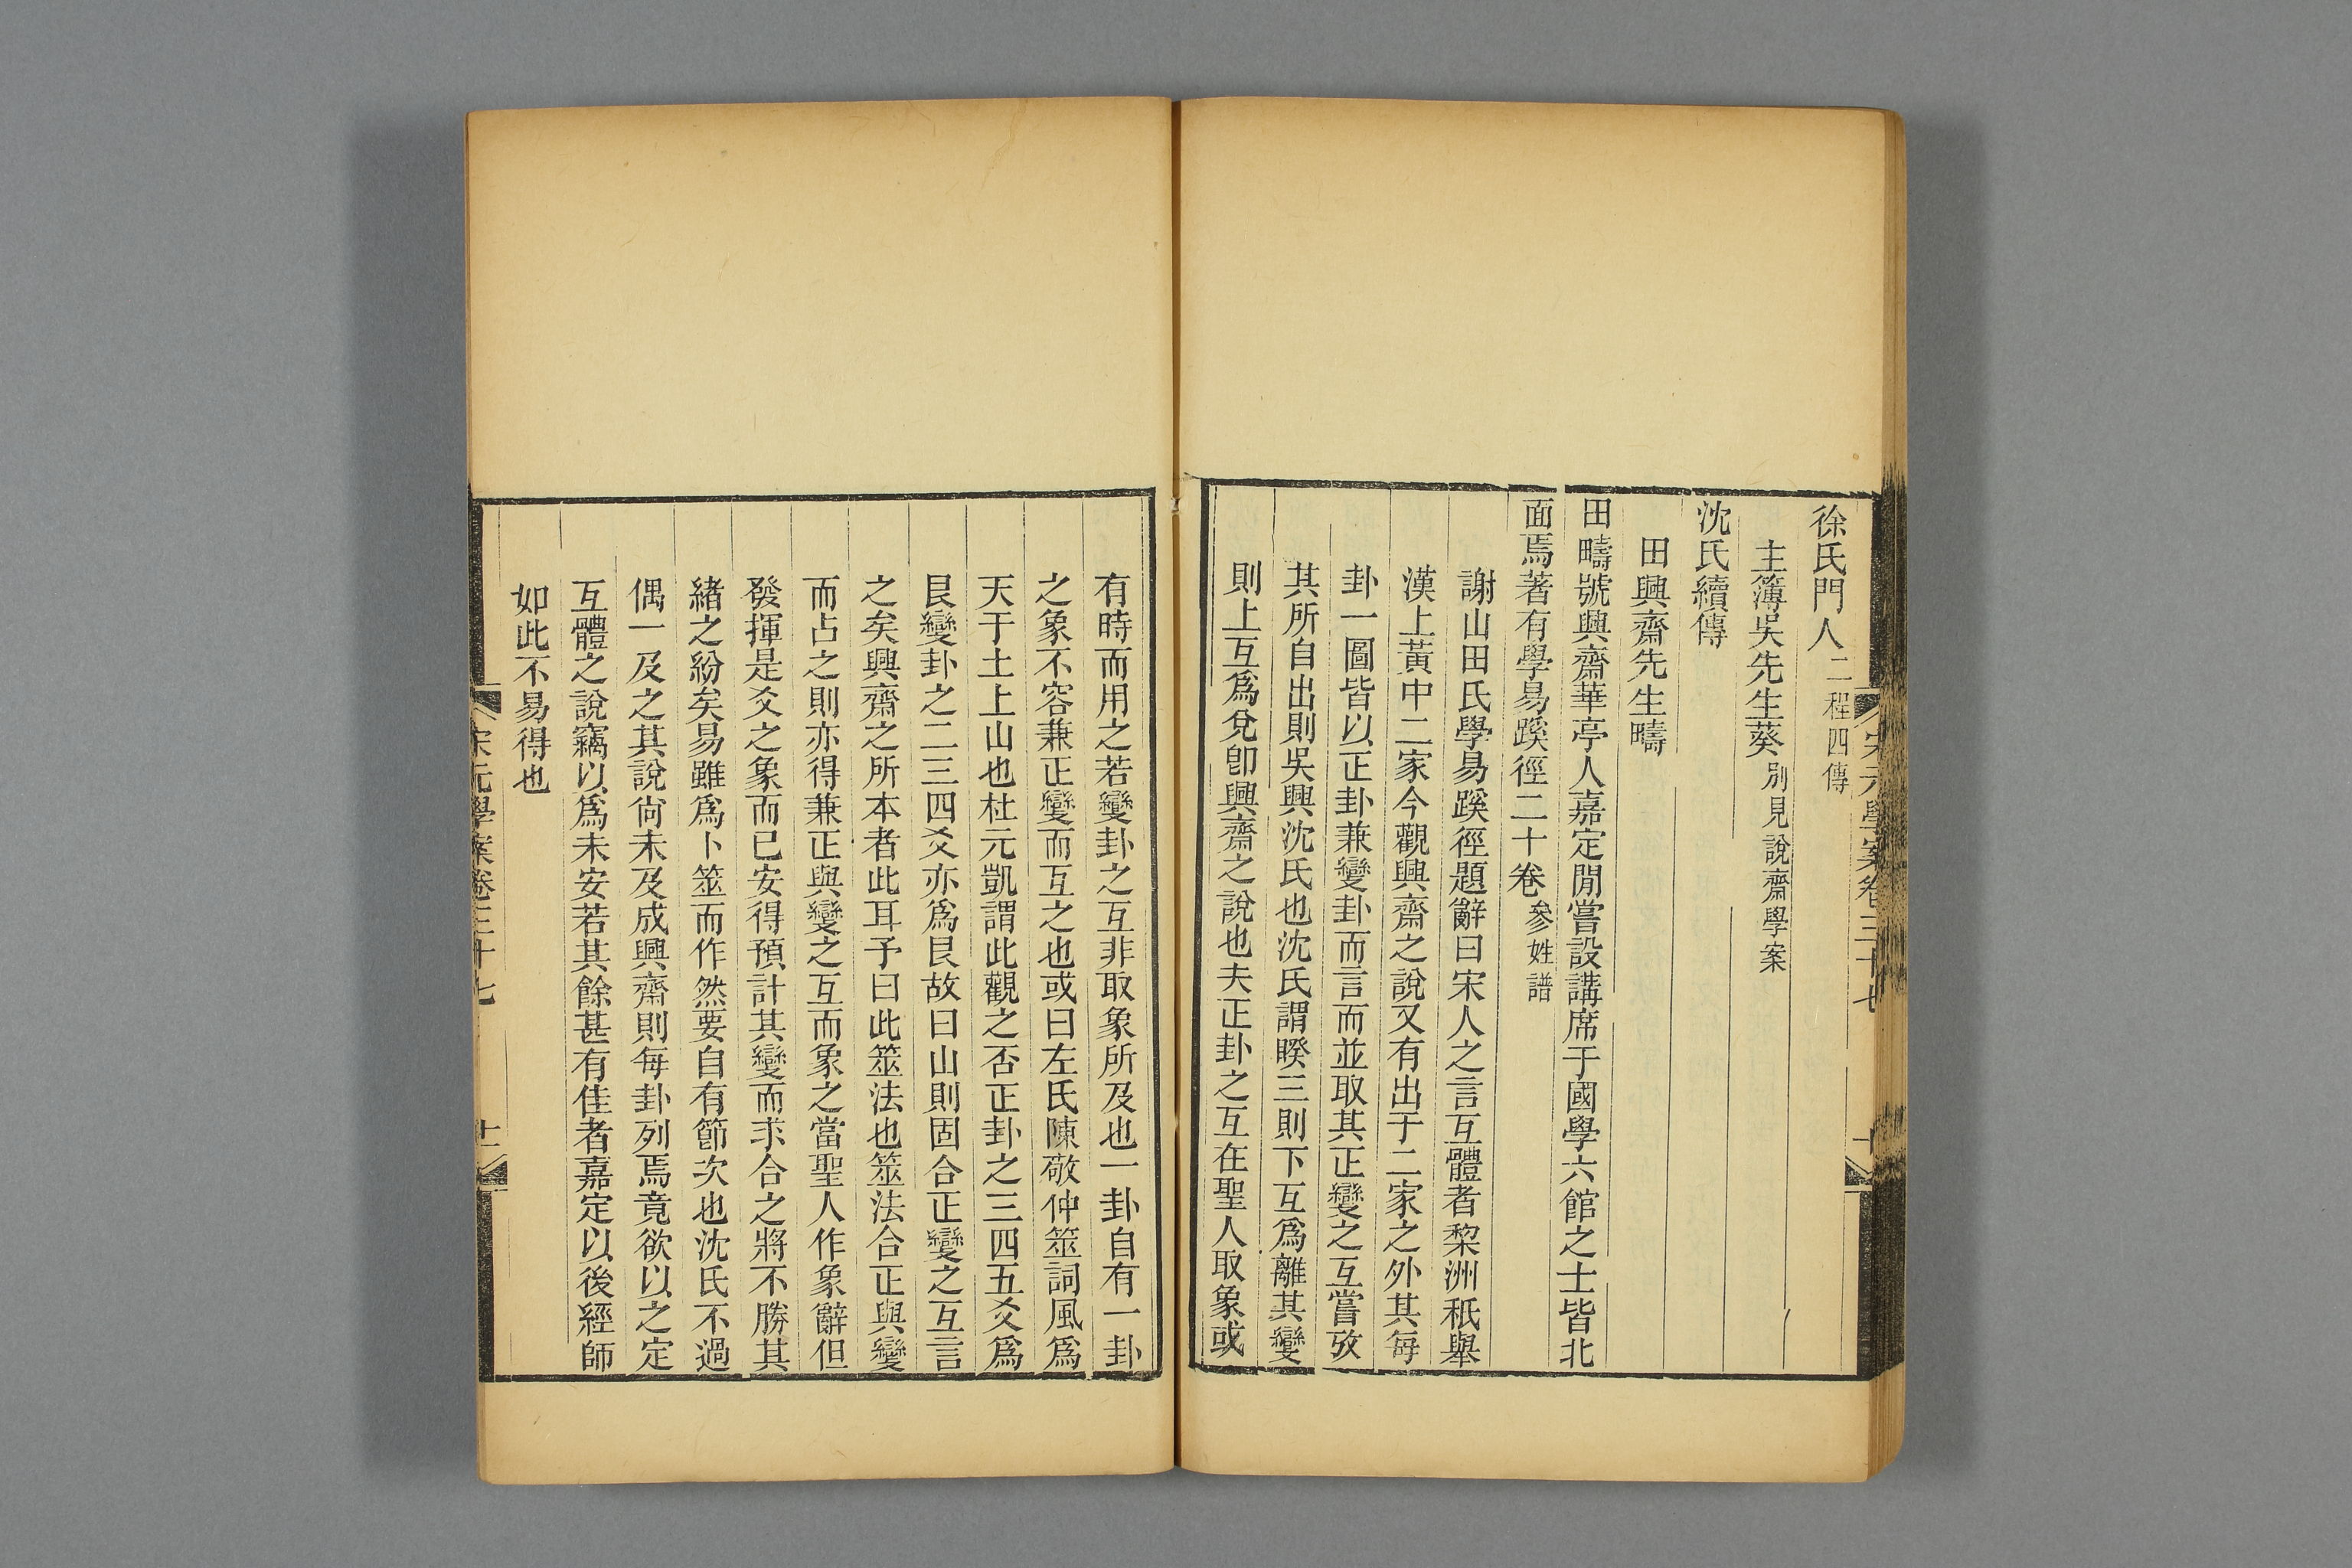 徐氏門人二程四傳
主簿吳先生葵別見說齋學案
沈氏續傳
田興齋先生疇
田疇號興齋華亭人嘉定閒嘗設講席于國學六館之士皆北
面焉著有學易蹊徑二十卷參姓譜
謝山田氏學易蹊徑題辭曰宋人之言互體者棃洲祇舉
漢上黃中二家今觀興齋之說又有出于二家之外其每
卦一圖皆以正卦兼變卦而言而並取其正變之互嘗攷
其所自出則吳興沈氏也沈氏謂睽三則下互爲離其變
則上互爲兌卽興齋之說也夫正卦之互在聖人取象或
有時而用之若變卦之互非取象所及也一卦自有一卦
之象不容兼正變而互之也或曰左氏陳敬仲筮詞風爲
天于土上山也杜元凱謂此觀之否正卦之三四五爻爲
艮變卦之二三四爻亦爲艮故曰山則固合正變之互言
之矣興齋之所本者此耳予曰此筮法也筮法合正與變
而占之則亦得兼正與變之互而象之當聖人作象辭但
發揮是爻之象而已安得預計其變而求合之將不勝其
緖之紛矣易雖爲卜筮而作然要自有節次也沈氏不過
偶一及之其說尙未及成興齋則每卦列焉竟欲以之定
互體之說竊以爲未安若其餘甚有佳者嘉定以後經師
如此不易得也
宋元學案卷三十七
十一